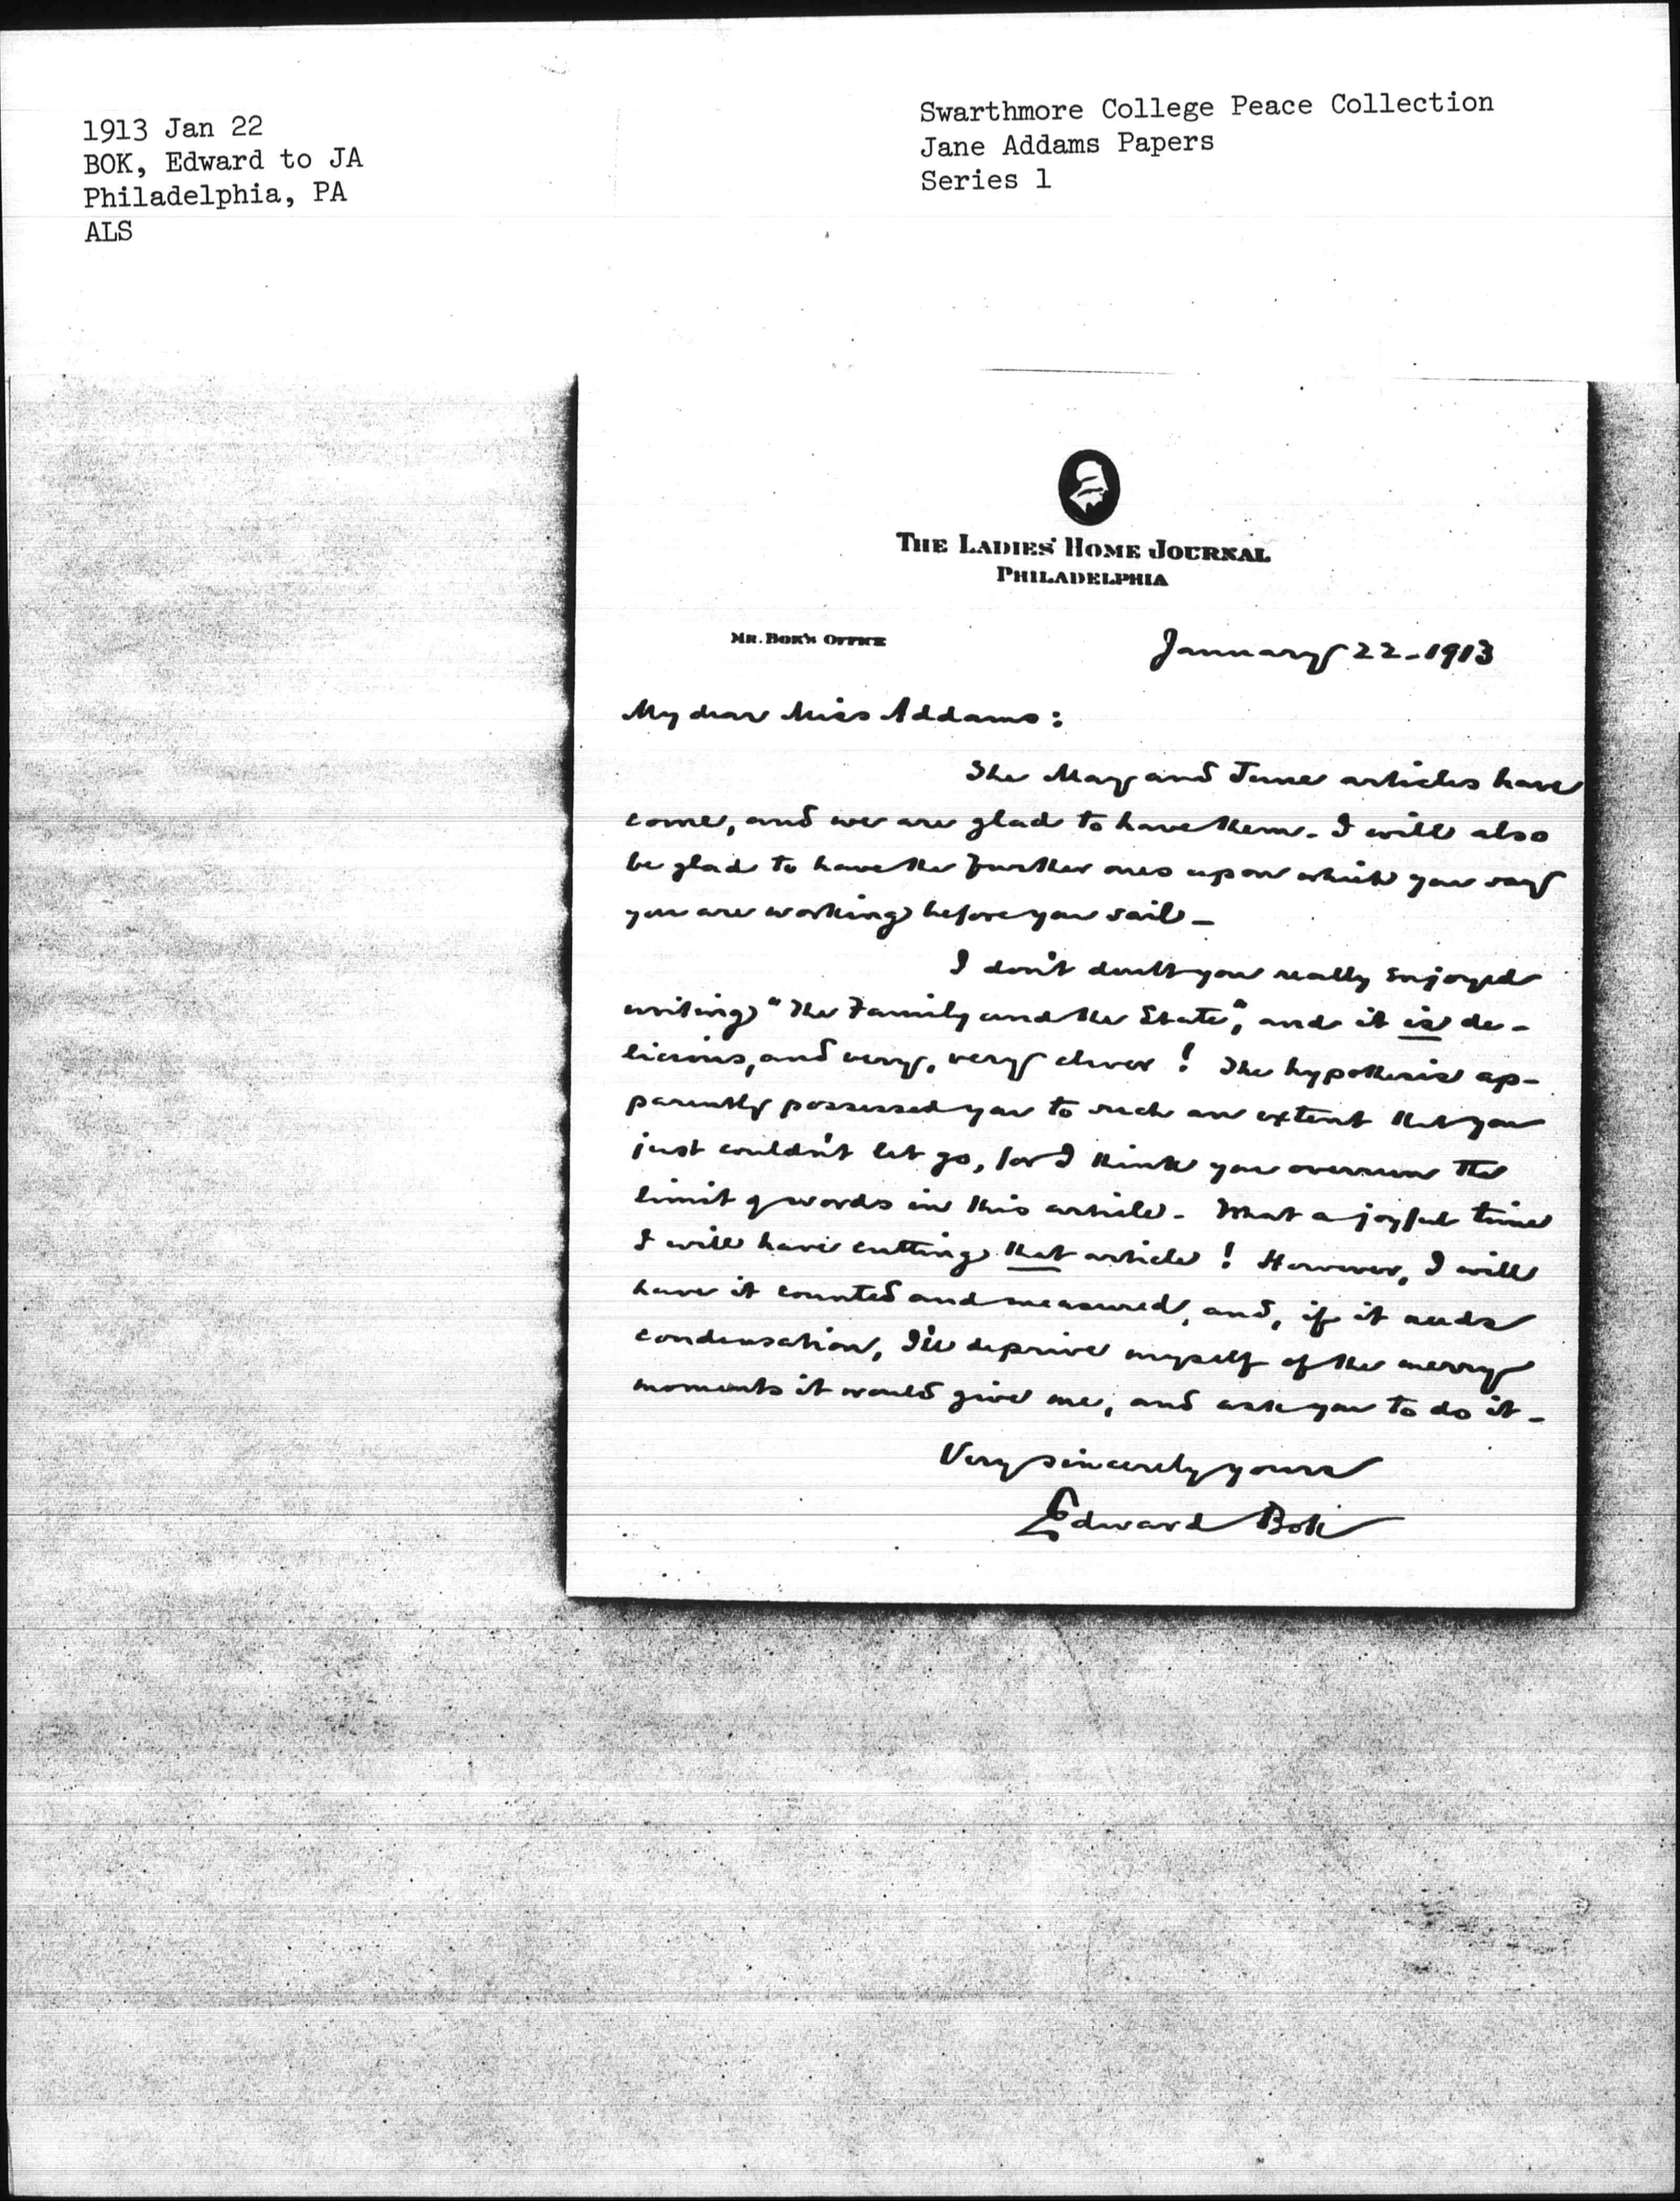 1913 Jan 22
BOK, Edward to JA
Philadelphia, PA
ALS
Swarthmore College Peace Collection
Jane Addams Papers
Series 1
THE LADIES' HOME JOURNAL
PHILADELPHIA
MR. BOK'S OFFICE
January 22-1913
My dear Miss Addams:
The May and June articles have
come, and we are glad to have them. I will also
be glad to have the further ones upon which you say
you are working before you sail—
I don't doubt you really enjoyed
writing "The Family and the State", and it is de-
licious, and very, very clever! The hypothesis ap-
parently possessed you to such an extent that you
just couldn't let go, for I think you overrun the
limit of words in this article. What a joyful time
I will have cutting that article! However, I will
have it counted and measured, and, if it needs
condensation, I'll deprive myself of the merry
moments it would give me, and ask you to do it—
Very sincerely yours
Edward Bok